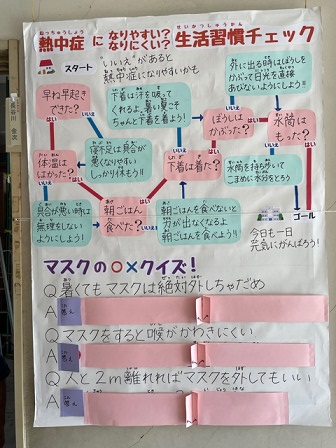 熱中症になりやすい？なりにくい？生活習慣チェック
ねっちゅうしょう
せいかつしゅうかん
スタート
"いいえ"があると
熱中症になりやすいかも
外に出る時はぼうしを
かぶって日光を直接
あびないようにしよう！
早ね早起き
できた？
下着は汗を吸って
くれるよ。暑い夏こそ
ちゃんと下着を着よう！
ぼうしは
かぶった？
水筒は
もった？
はい
いいえ
体温は
はかった？
寝不足は具合が
悪くなりやすい
しっかり休もう！！
下着は着た？
水筒を持ち歩いて
こまめに水分をとろう
具合が悪い時は
無理をしない
ようにしよう！
朝ごはん
食べた？
朝ごはんを食べないと
力が出なくなるよ
朝ごはんを食べよう！！
ゴール
今日も一日
元気にがんばろう！
マスクの○×クイズ！
Q 暑くてもマスクは絶対外しちゃだめ
A 答え
Q マスクをすると喉がかわきにくい
A 答え
Q 人と2m離れればマスクを外してもいい
A 答え